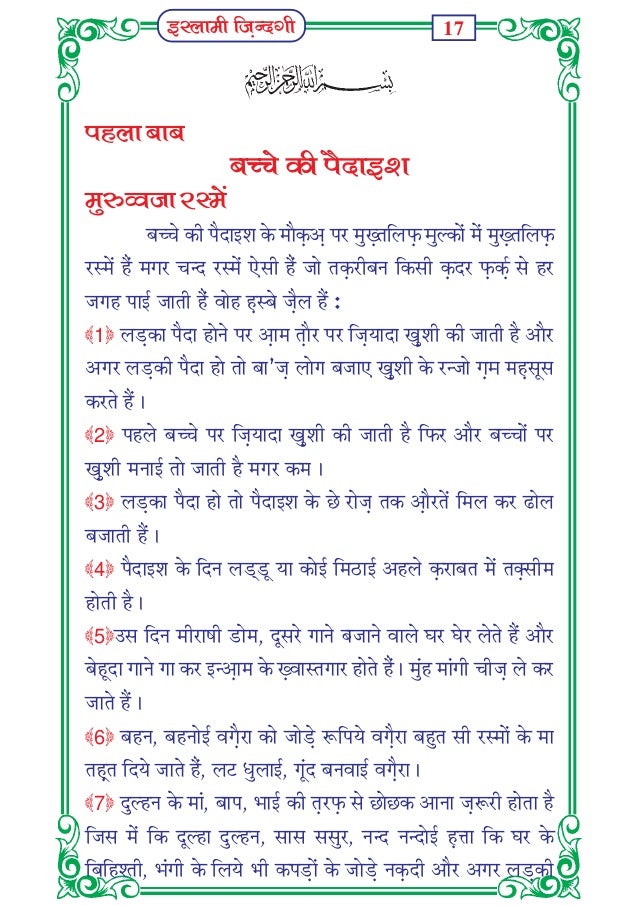 इस्लामी ज़िन्दगी
17
بِسْمِ اللهِ الرَّحْمٰنِ الرَّحِيْمِ
पहला बाब
बच्चे की पैदाइश
मुरुव्वजा रस्में
बच्चे की पैदाइश के मौक़अ़ पर मुख़्तलिफ़ मुल्कों में मुख़्तलिफ़
रस्में हैं मगर चन्द रस्में ऐसी हैं जो तक़रीबन किसी क़दर फ़र्क़ से हर
जगह पाई जाती हैं वोह ह़स्बे ज़ैल हैं :
﴾1﴿ लड़का पैदा होने पर आ़म त़ौर पर ज़ियादा खुशी की जाती है और
अगर लड़की पैदा हो तो बा'ज़ लोग बजाए खुशी के रन्जो ग़म मह़सूस
करते हैं ।
﴾2﴿ पहले बच्चे पर ज़ियादा खुशी की जाती है फिर और बच्चों पर
खुशी मनाई तो जाती है मगर कम ।
﴾3﴿ लड़का पैदा हो तो पैदाइश के छे रोज़ तक औ़रतें मिल कर ढोल
बजाती हैं ।
﴾4﴿ पैदाइश के दिन लड्डू या कोई मिठाई अहले क़राबत में तक़्सीम
होती है ।
﴾5﴿उस दिन मीराषी डोम, दूसरे गाने बजाने वाले घर घेर लेते हैं और
बेहूदा गाने गा कर इन्आ़म के ख़्वास्तगार होते हैं । मुंह मांगी चीज़ ले कर
जाते हैं ।
﴾6﴿ बहन, बहनोई वग़ैरा को जोड़े रूपिये वग़ैरा बहुत सी रस्मों के मा
तह़्त दिये जाते हैं, लट धुलाई, गूंद बनवाई वग़ैरा ।
﴾7﴿ दुल्हन के मां, बाप, भाई की त़रफ़ से छोछक आना ज़रूरी होता है
जिस में कि दूल्हा दुल्हन, सास ससुर, नन्द नन्दोई ह़त्ता कि घर के
बिहिश्ती, भंगी के लिये भी कपड़ों के जोड़े नक़दी और अगर लड़की